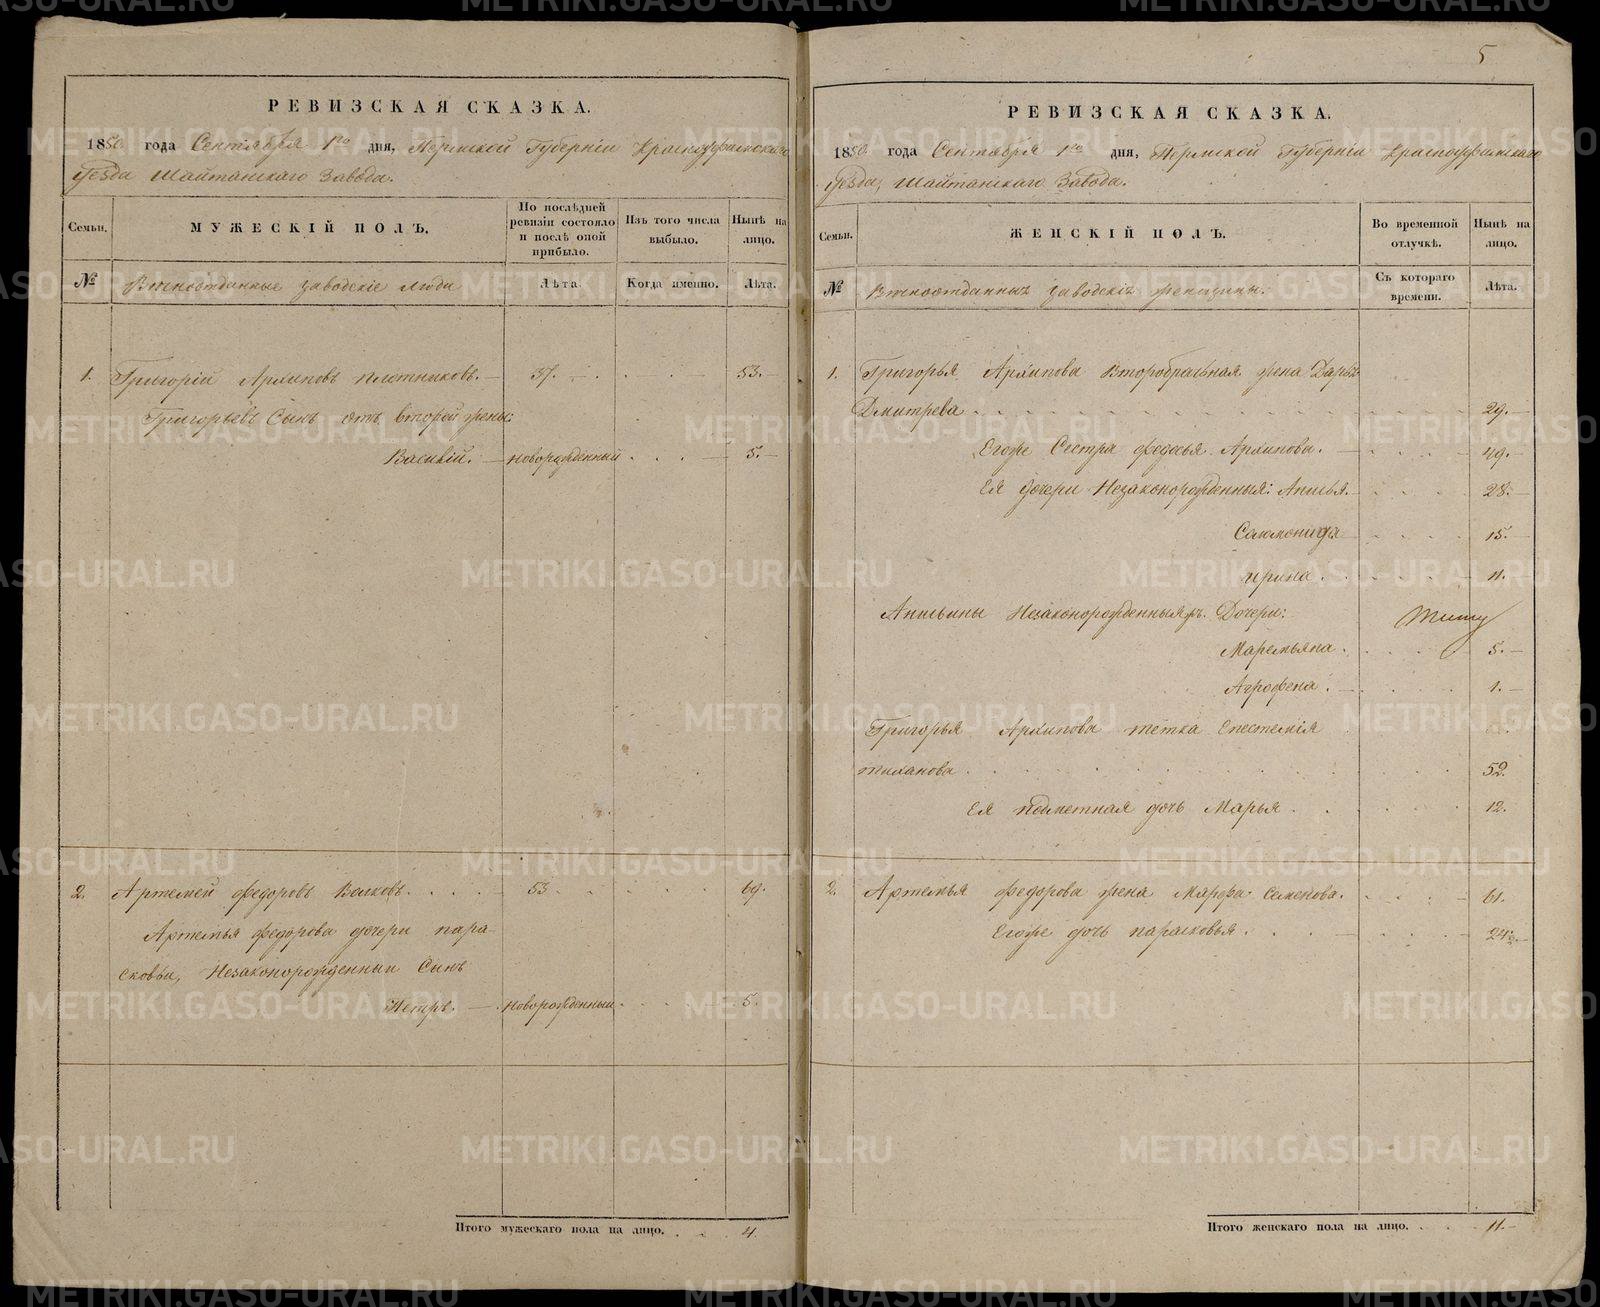 5
РЕВИЗСКАЯ СКАЗКА.
1850 года Сентября 1го дня, Пермской Губерніи Красноуфимскаго
уѣзда Шайтанскаго Завода.
Семьи.
МУЖЕСКІЙ ПОЛЪ.
По послѣдней ревизіи состояло и послѣ оной прибыло.
Изъ того числа выбыло.
Нынѣ на лицо.
№
заводскіе люди
Лѣта.
Когда именно.
Лѣта.
1. Григорій Архиповъ Плотниковъ. 37. 53.
Григорьевъ Сынъ отъ второй жены:
Василій. новорожденный 5.
2. Артемей Федоровъ 53 69.
Артемья Федорова дочери Пара-
сковьи, Незаконорожденный Сынъ
Петръ. новорожденный 5.
Итого мужескаго пола на лицо. 4.
РЕВИЗСКАЯ СКАЗКА.
1850 года Сентября 1го дня, Пермской Губерніи Красноуфимскаго
уѣзда, Шайтанскаго Завода.
Семьи.
ЖЕНСКІЙ ПОЛЪ.
Во временной отлучкѣ.
Нынѣ на лицо.
№
заводскіе женщины.
Съ котораго времени.
Лѣта.
1. Григорья Архипова Второбрачная жена Дарья
Дмитрева 29.
Егоже Сестра Федосья Архипова. 49.
Ея дочери Незаконорожденныя: Анисья. 28.
Соломонида 15.
Ирина. 11.
Анисьины Незаконорожденныя Дочери:
Маремьяна. 5.
Агрофена. 1.
Григорья Архипова тетка Епестемія
Тиханова 52.
Ея подметная дочь Марья 12.
2. Артемья Федорова жена Марфа Семенова. 61.
Егоже дочь Парасковья. 24.
Итого женскаго пола на лицо. 11.
METRIKI.GASO-URAL.RU